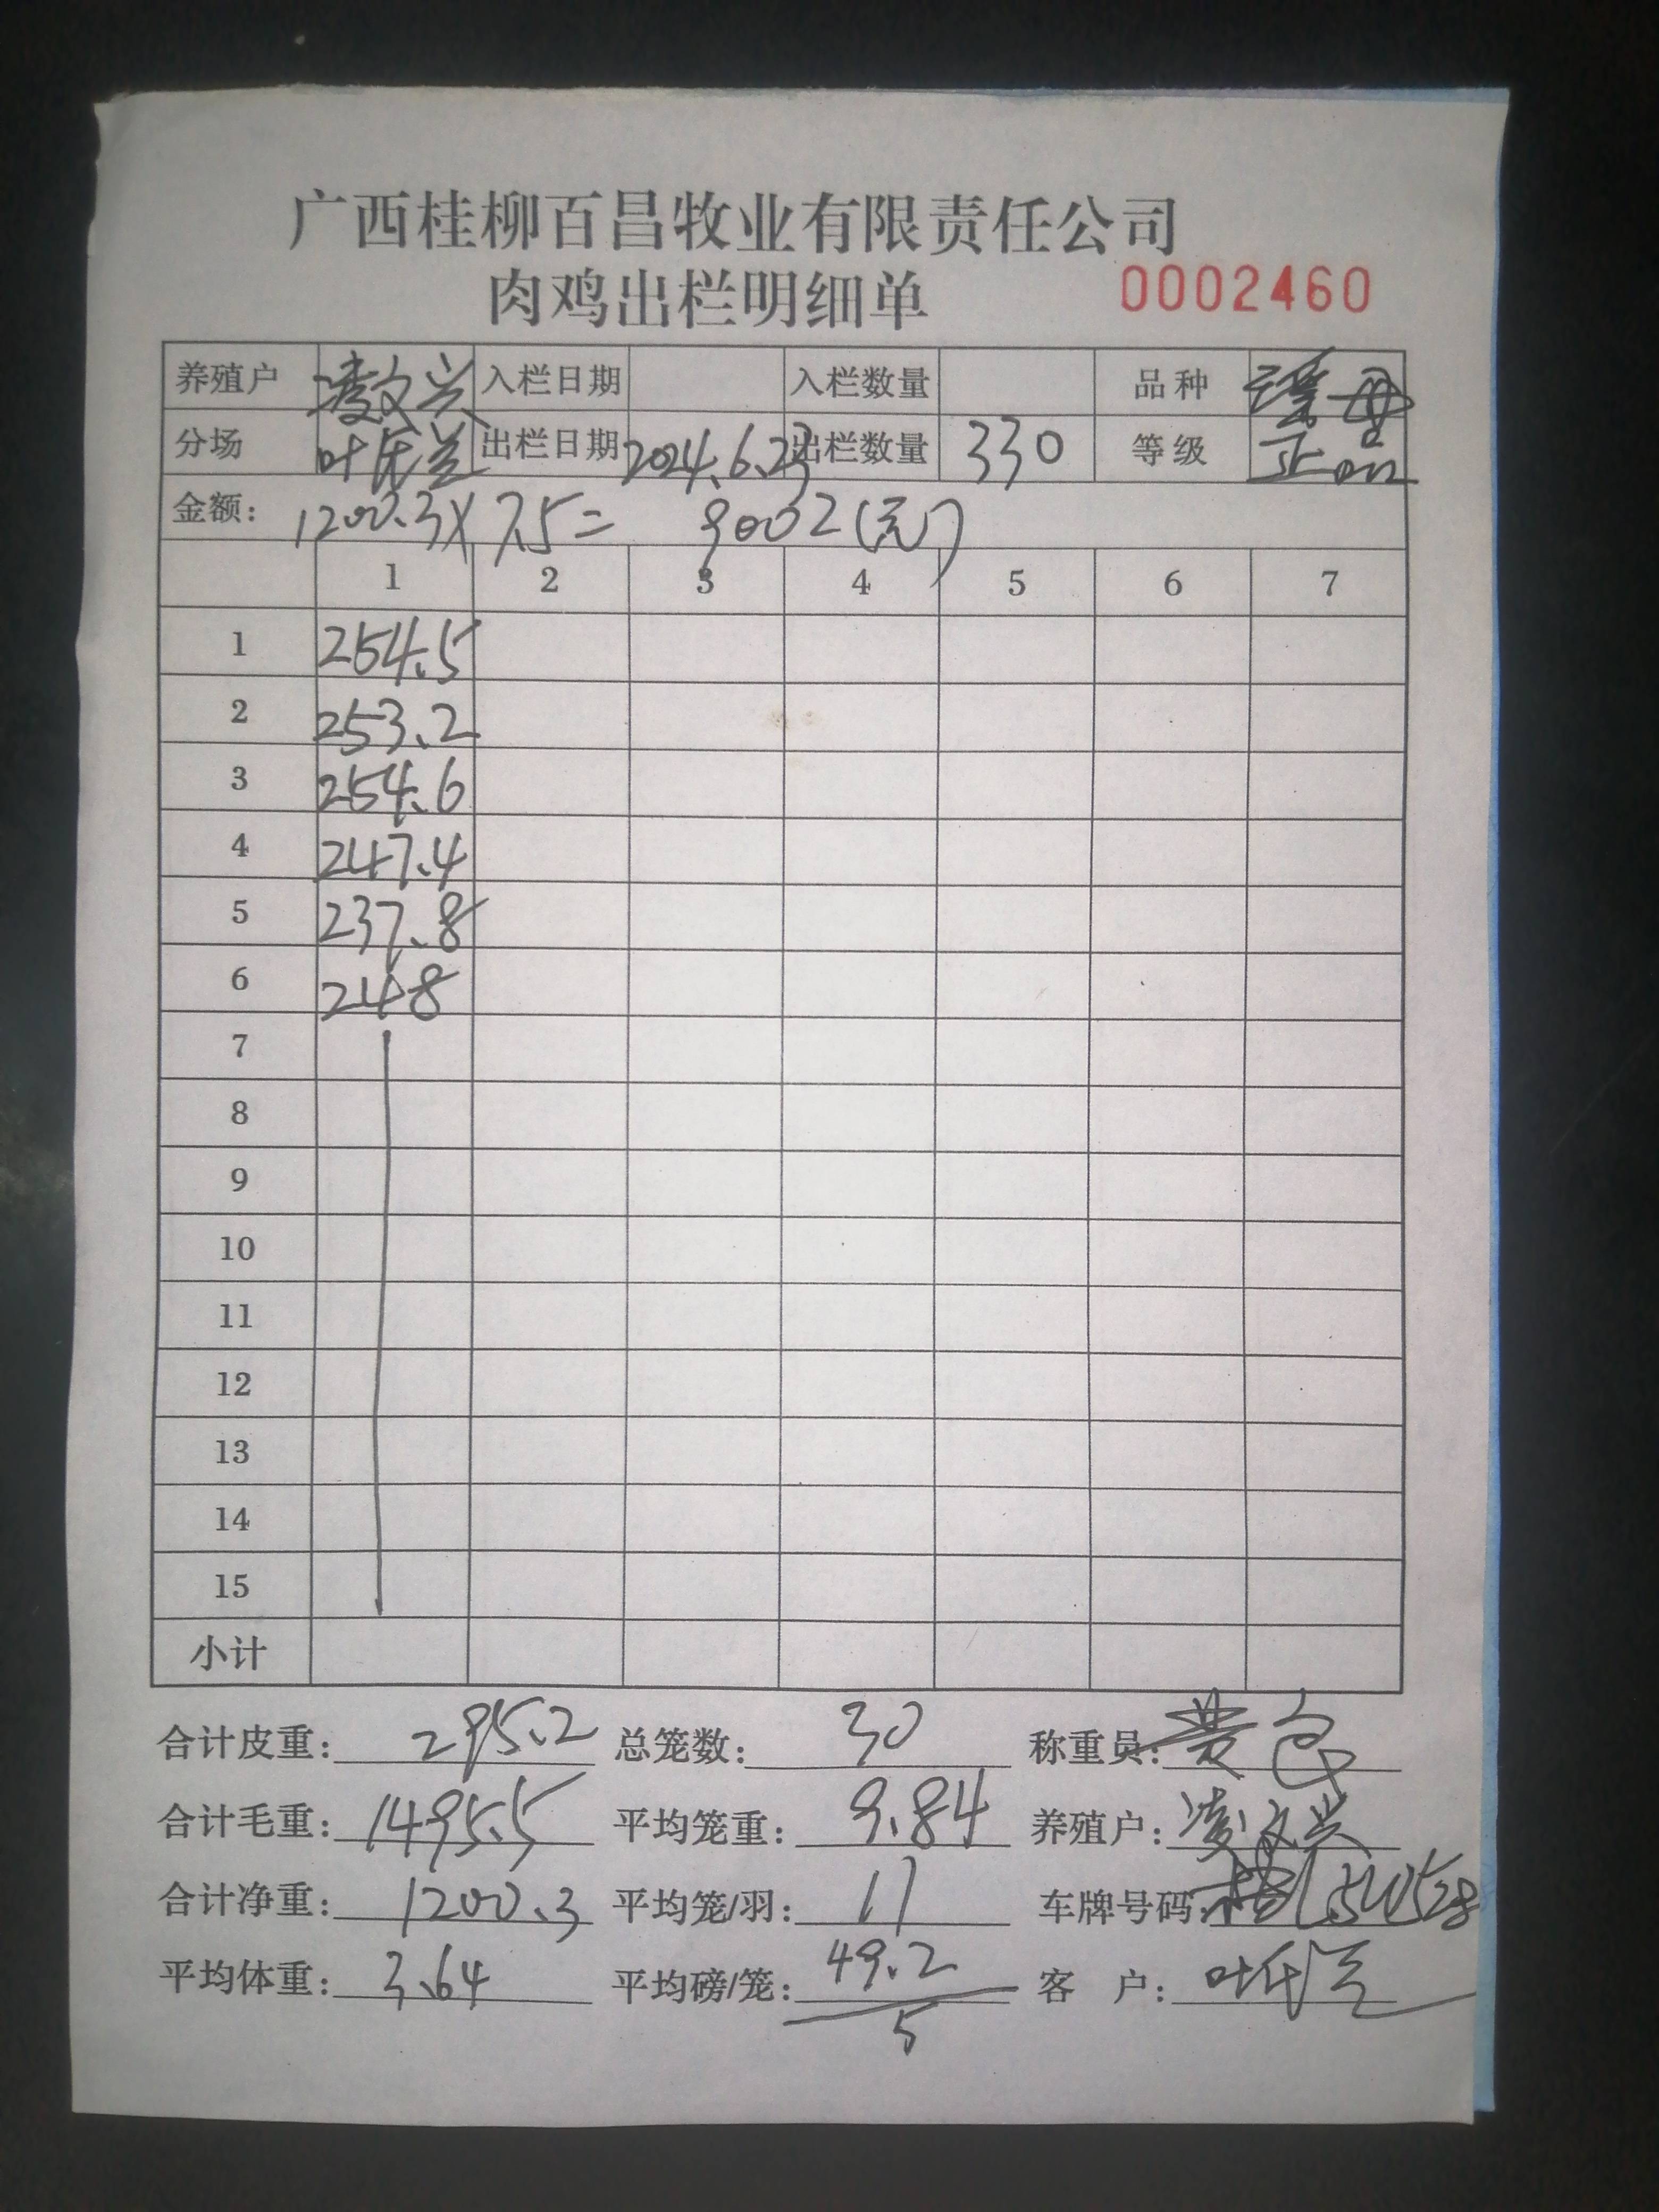 广西桂柳百昌牧业有限责任公司
肉鸡出栏明细单 0002460
养殖户 凌文兴 入栏日期 入栏数量 品种 瑶母
分场 出栏日期 2024.6.23 出栏数量 330 等级 正品
金额: 1200.3×7.5= 9002(元)
1 2 3 4 5 6 7
1 254.5
2 253.2
3 254.6
4 247.4
5 237.8
6 248
7
8
9
10
11
12
13
14
15
小计
合计皮重: 295.2 总笼数: 30 称重员: 黄
合计毛重: 1495.5 平均笼重: 9.84 养殖户: 凌文兴
合计净重: 1200.3 平均笼/羽: 11 车牌号码:
平均体重: 3.64 平均磅/笼: 49.2 客 户:
5